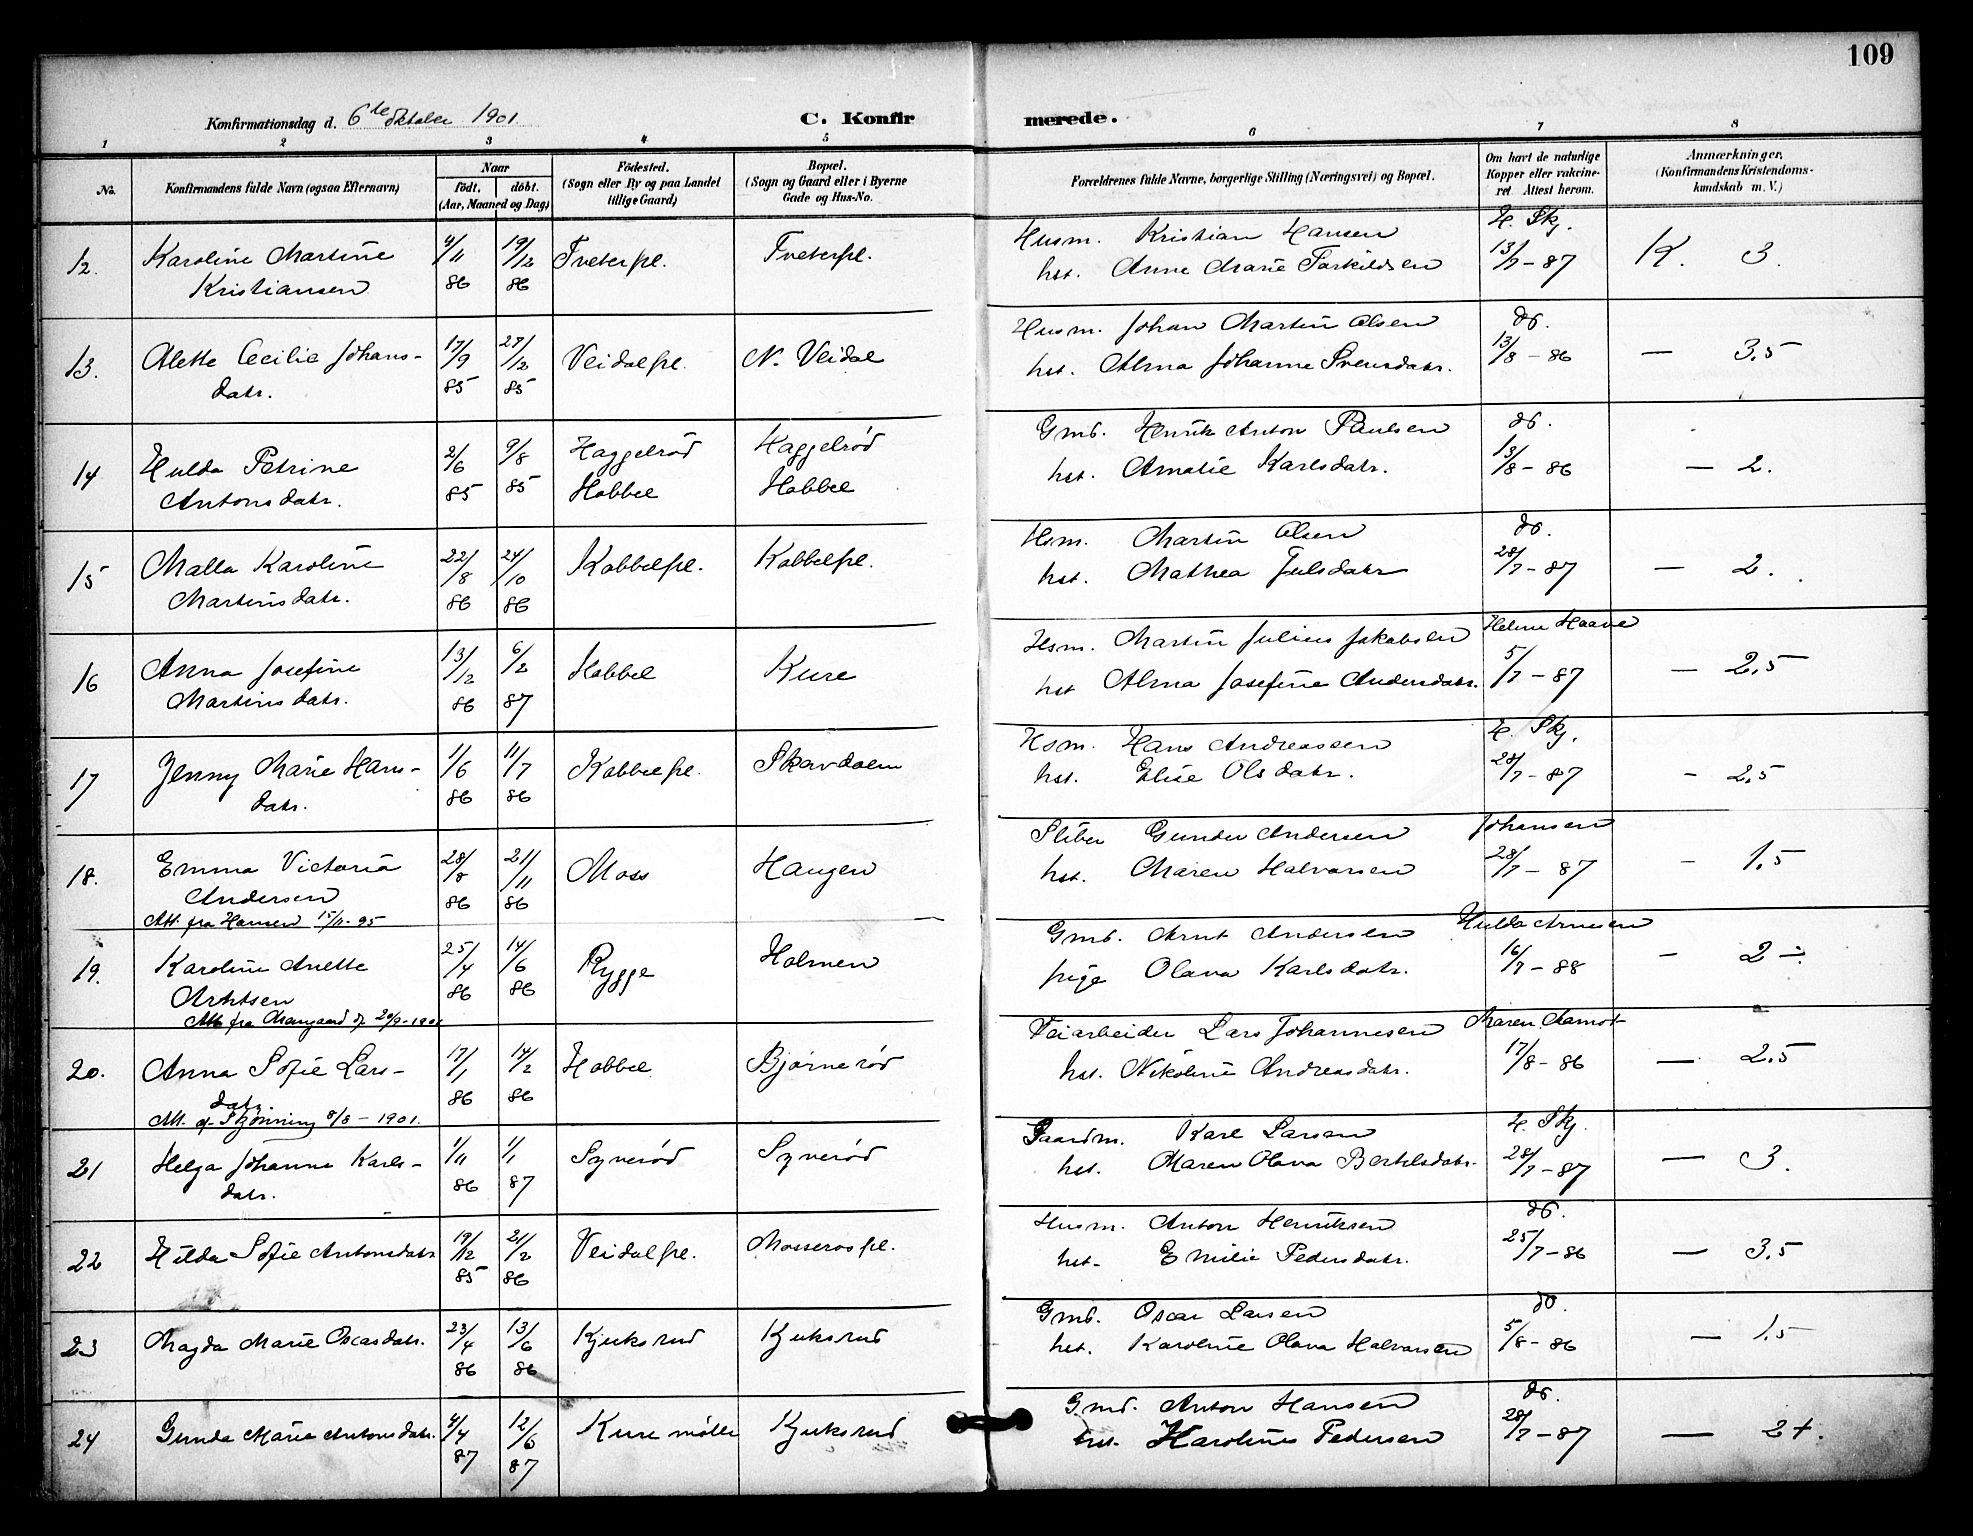 109
Konfirmationsdag d. 6te Oktober 1901.
C. Konfirmerede.
1 2 3 4 5 6 7 8
No.
Konfirmandens fulde Navn (ogsaa Efternavn)
Naar
födt. döbt.
(Aar, Maaned og Dag)
Födested.
(Sogn eller By og paa Landet
tillige Gaard)
Bopæl.
(Sogn og Gaard eller i Byerne
Gade og Hus-No.
Forældrenes fulde Navne, borgerlige Stilling (Næringsvei) og Bopæl.
Om havt de naturlige
Kopper eller vakcine-
ret Attest herom.
Anmærkninger,
(Konfirmandens Kristendoms-
kundskab m. V.)
12. Karoline Martine Kristiansen 4/11 86 19/12 86 Tveterpl. Tveterpl.
Husm. Kristian Hansen H. Skj.
hst. Anne Marie Torkildsen 13/7-87 K. 3.
13. Alette Cecilie Johans-
datr. 17/9 85 27/12 85 Veidalpl. N. Veidal
Husm. Johan Martin Olsen do.
hst. Alma Johanne Svensdatr. 13/8-86 — 3.5
14 Hulda Petrine
Antonsdatr. 2/6 85 9/8 85 Haggelrød Hobbel Haggelrød Hobbel
Gmd. Henrik Anton Paulsen do.
hst. Amalie Karlsdatr. 13/8-86 — 2.
15 Malla Karoline
Martinsdatr. 22/8 86 24/10 86 Kobbelpl. Kobbelpl.
Hsm. Martin Olsen do.
hst. Mathea Julsdatr 28/7-87 — 2.
16 Anna Josefine
Martinsdatr. 13/12 86 6/2 87 Hobbel Kure
Hsm. Martin Julius Jakobsen Helene Haave
hst Alma Josefine Andersdatr. 5/7-87 — 2.5
17 Jenny Marie Hans-
datr. 1/6 86 11/7 86 Kobbelpl. Skavdalen
Hsm. Hans Andreassen H. Skj.
hst. Elise Olsdatr. 28/7-87 - 2.5
18. Emma Victoria
Andersen 28/8 86 21/11 86 Moss Haugen
Att. fra Hansen 15/11-95
Sliber Gunder Andersen Johansen
hst. Maren Halvorsen 28/7-87 - 1.5
19. Karoline Anette
Arntsen 25/4 86 14/6 86 Rygge Holmen
Att fra 20/9-1901
Gmd. Arnt Andersen Hulda Arnesen
pige Olava Karlsdatr. 16/7-88 - 2÷.
20. Anna Sofie Lars-
datr. 17/1 86 14/2 86 Hobbel Bjørnerød
Att. af Skjønning 8/8-1901.
Veiarbeider Lars Johannesen Maren Aamot
hst. Nikoline Andreasdatr. 17/8-86 — 2.5
21 Helga Johanne Karls-
datr. 1/11 86 1/1 87 Synerød Synerød
Gaardm. Karl Larsen H. Skj.
hst. Maren Olava Bertelsdatr. 28/7-87 — 3.
22 Hilda Sofie Antonsdatr 19/12 85 21/2 86 Veidalpl. Mosserospl.
Husm. Anton Henriksen do.
hst- Emilie Pedersdatr. 25/7-86 — 3.5
23 Magda Marie Oscarsdatr. 23/4 86 13/6 86 Kjuksrud Kjuksrud
Gmd. Oscar Larsen do.
hst. Karoline Olava Halvorsen 5/8-86 — 1.5
24 Gunda Marie Antonsdatr. 4/4 87 12/6 87 Kure mølle Kjuksrud
Gmd. Anton Hansen do.
hst. Karoline Pedersen 28/7-87 — 2+.